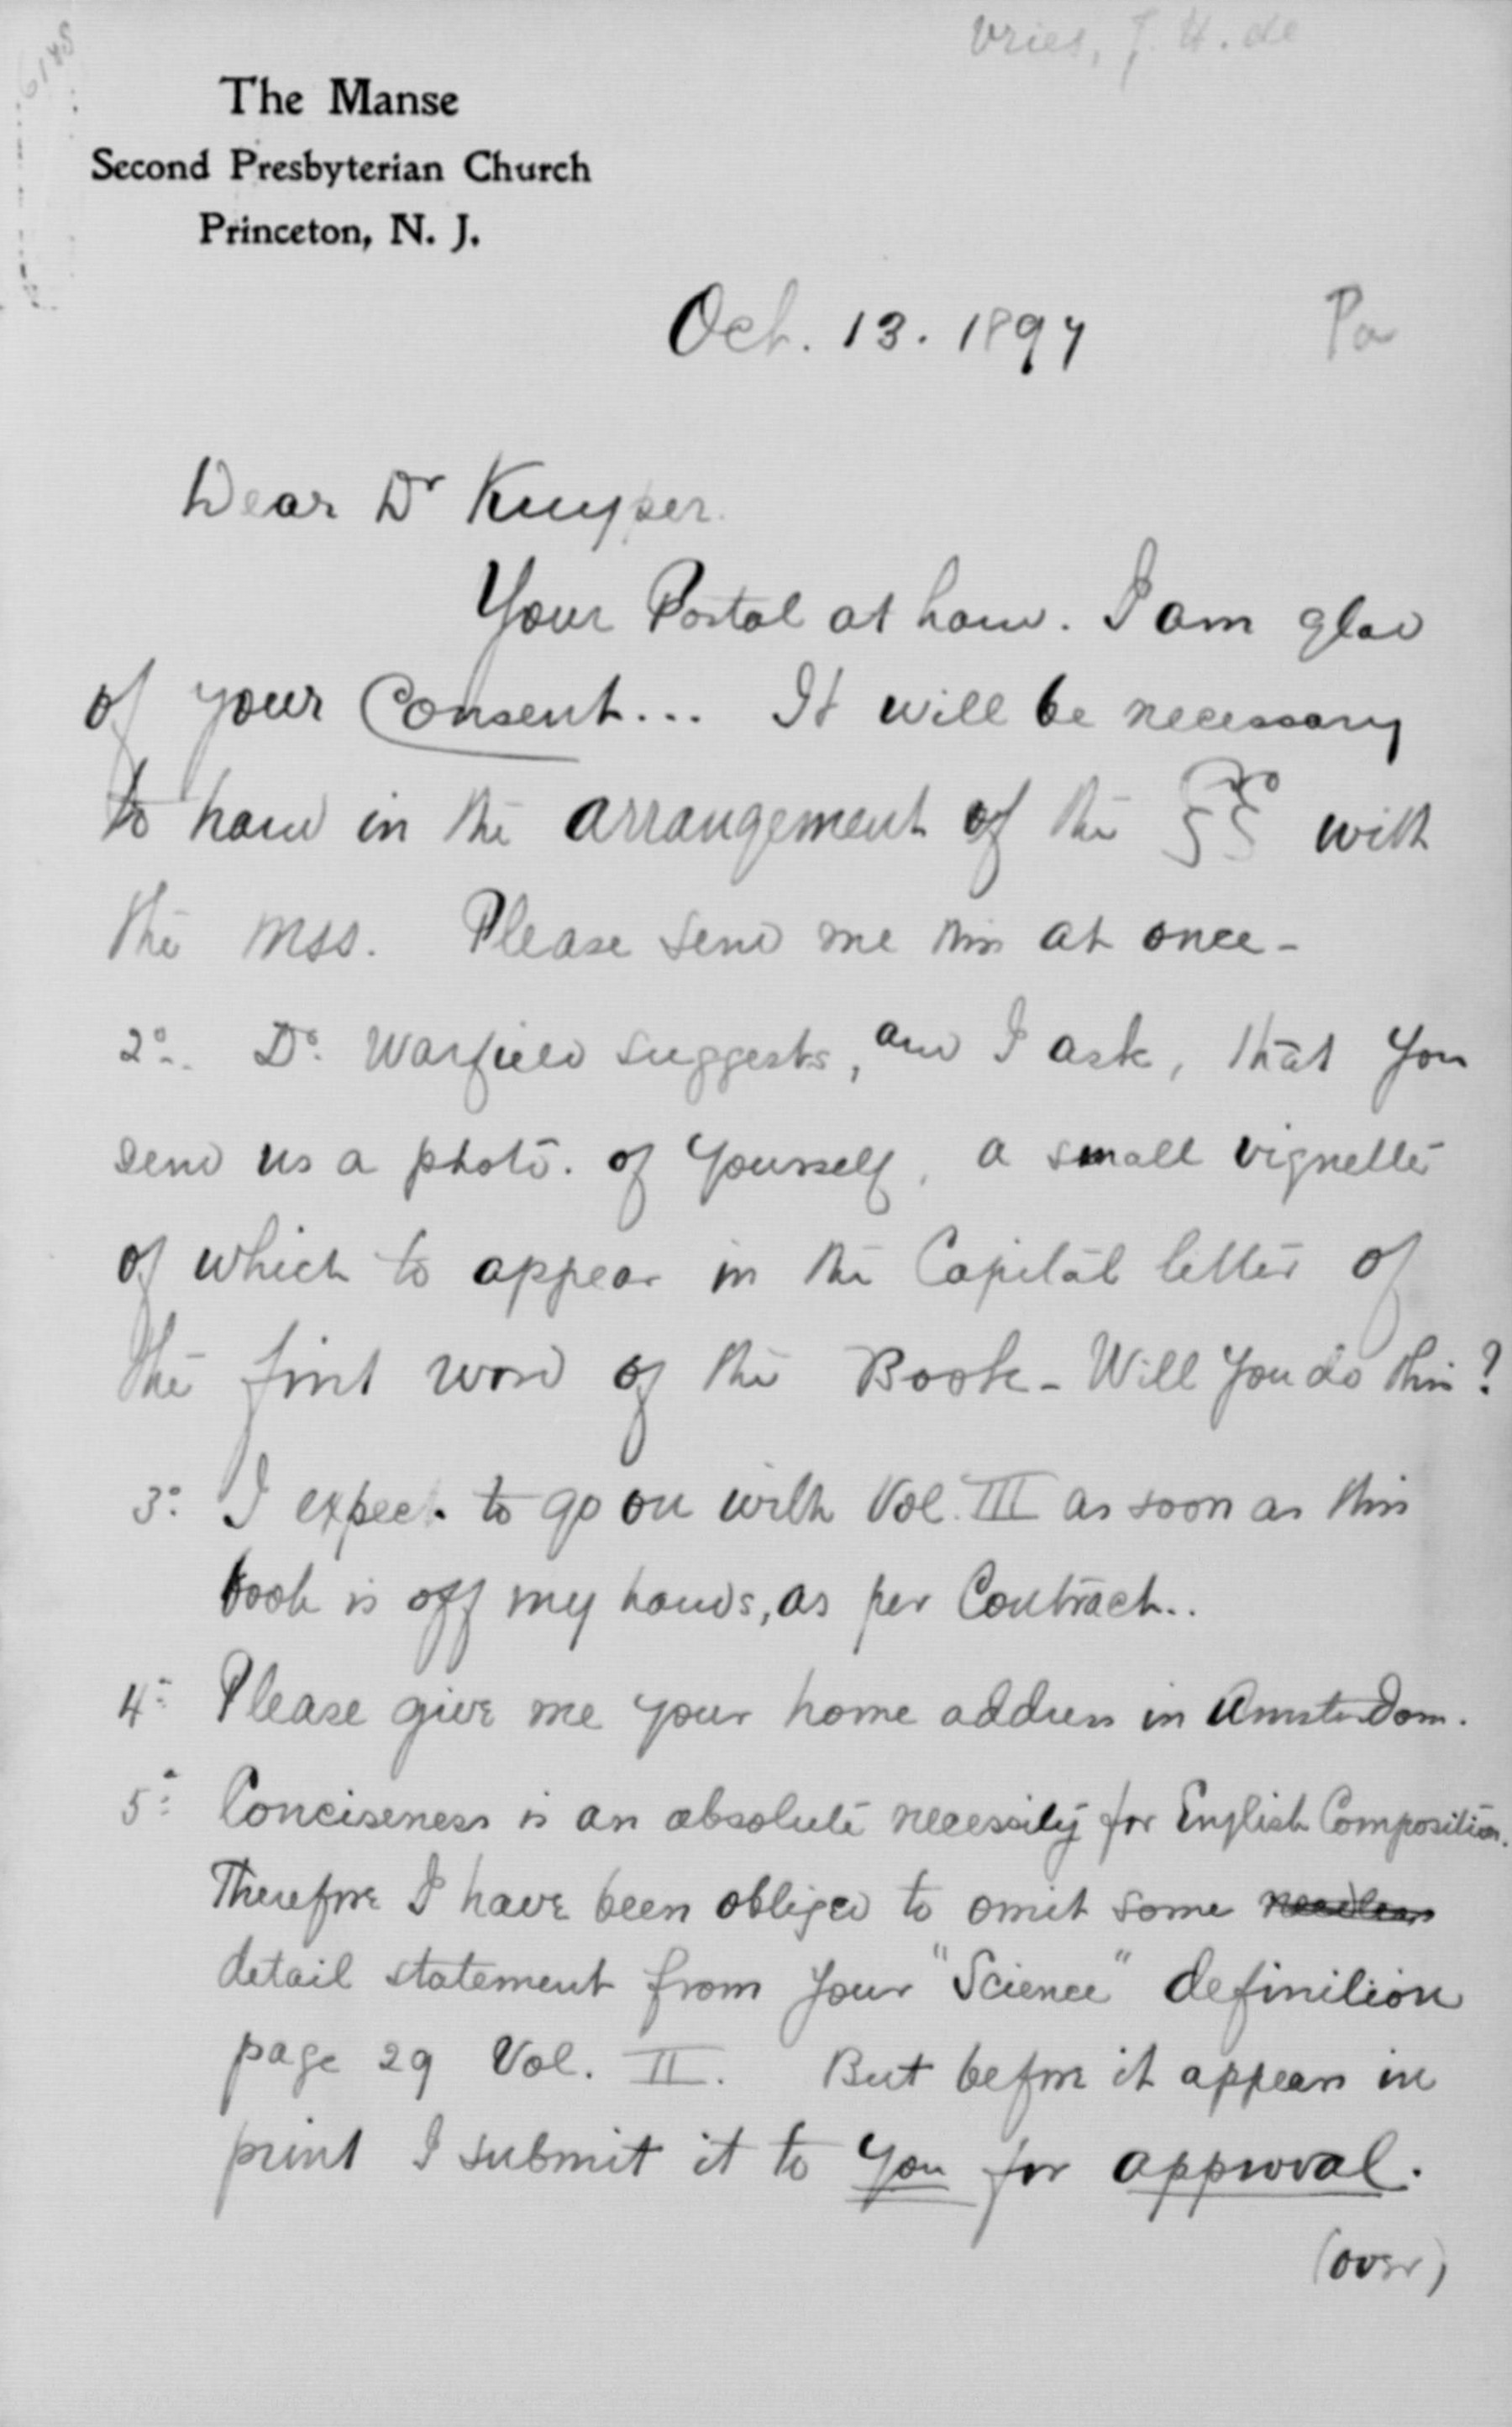 6145
Vries, J. H. de
The Manse
Second Presbyterian Church
Princeton, N. J.
Oct. 13. 1897
Pa
Dear Dr Kuyper.
Your Postal at hand. I am glad
of your Consent... It will be necessary
to hand in the arrangement of the §§ with
the Mss. Please send me this at once -
2o. Dr. Warfield suggests, and I ask, that you
send us a photo. of yourself, a small vignette
of which to appear in the Capital letter of
the first word of the Book - Will you do this?
3o I expect to go on with Vol. III as soon as this
book is off my hands, as per Contract..
4o Please give me your home address in Amsterdam.
5o Conciseness is an absolute necessity for English Composition.
Therefore I have been obliged to omit some needless
detail statement from your "Science" definition
page 29 Vol. II. But before it appears in
print I submit it to you for approval.
(over)